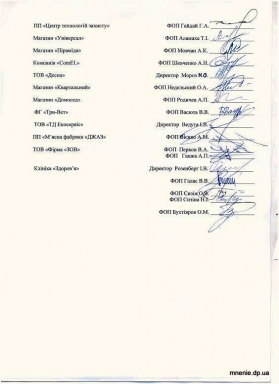 ПП «Центр технологій захисту» ФОП Гайдай Г.А.
Магазин «Універсал» ФОП Т.І.
Магазин «Піраміда» ФОП Мовчан А.К.
Компанія «ComEL» ФОП Шевченко А.Н.
ТОВ «Десна» Директор Мороз
Магазин «Квартальний» ФОП Недельский О.А.
Магазин «Домосед» ФОП Родичев А.П.
ФГ «Три-Вет» ФОП Васюта В.В.
ТОВ «ТД Екосервіс» Директор Ведута І.В.
ПП «М'ясна фабрика «ДЖАЗ» ФОП А.М.
ТОВ «Фірма «ЗОВ» ФОП Перков В.А.
ФОП Ганжа А.П.
Клініка «Здоров'я» Директор Розенберг І.В.
ФОП Галис В.В.
ФОП О.М.
ФОП Н.І.
ФОП О.М.
mnenie.dp.ua